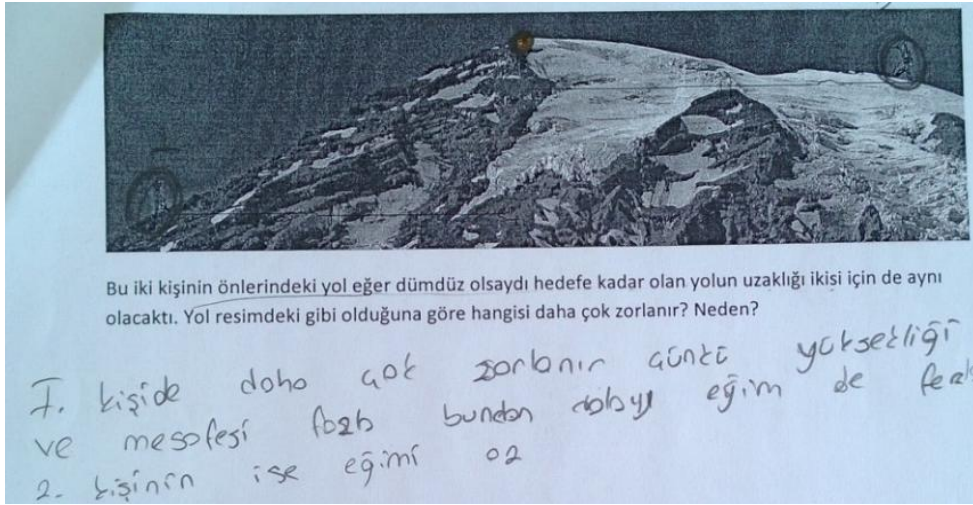 Bu iki kişinin önlerindeki yol eğer dümdüz olsaydı hedefe kadar olan yolun uzaklığı ikisi için de aynı
olacaktı. Yol resimdeki gibi olduğuna göre hangisi daha çok zorlanır? Neden?
I. kişide daha çok zorlanır çünkü yüksekliği
ve mesafesi fazla bundan dolayı eğim de
2. kişinin ise eğimi az